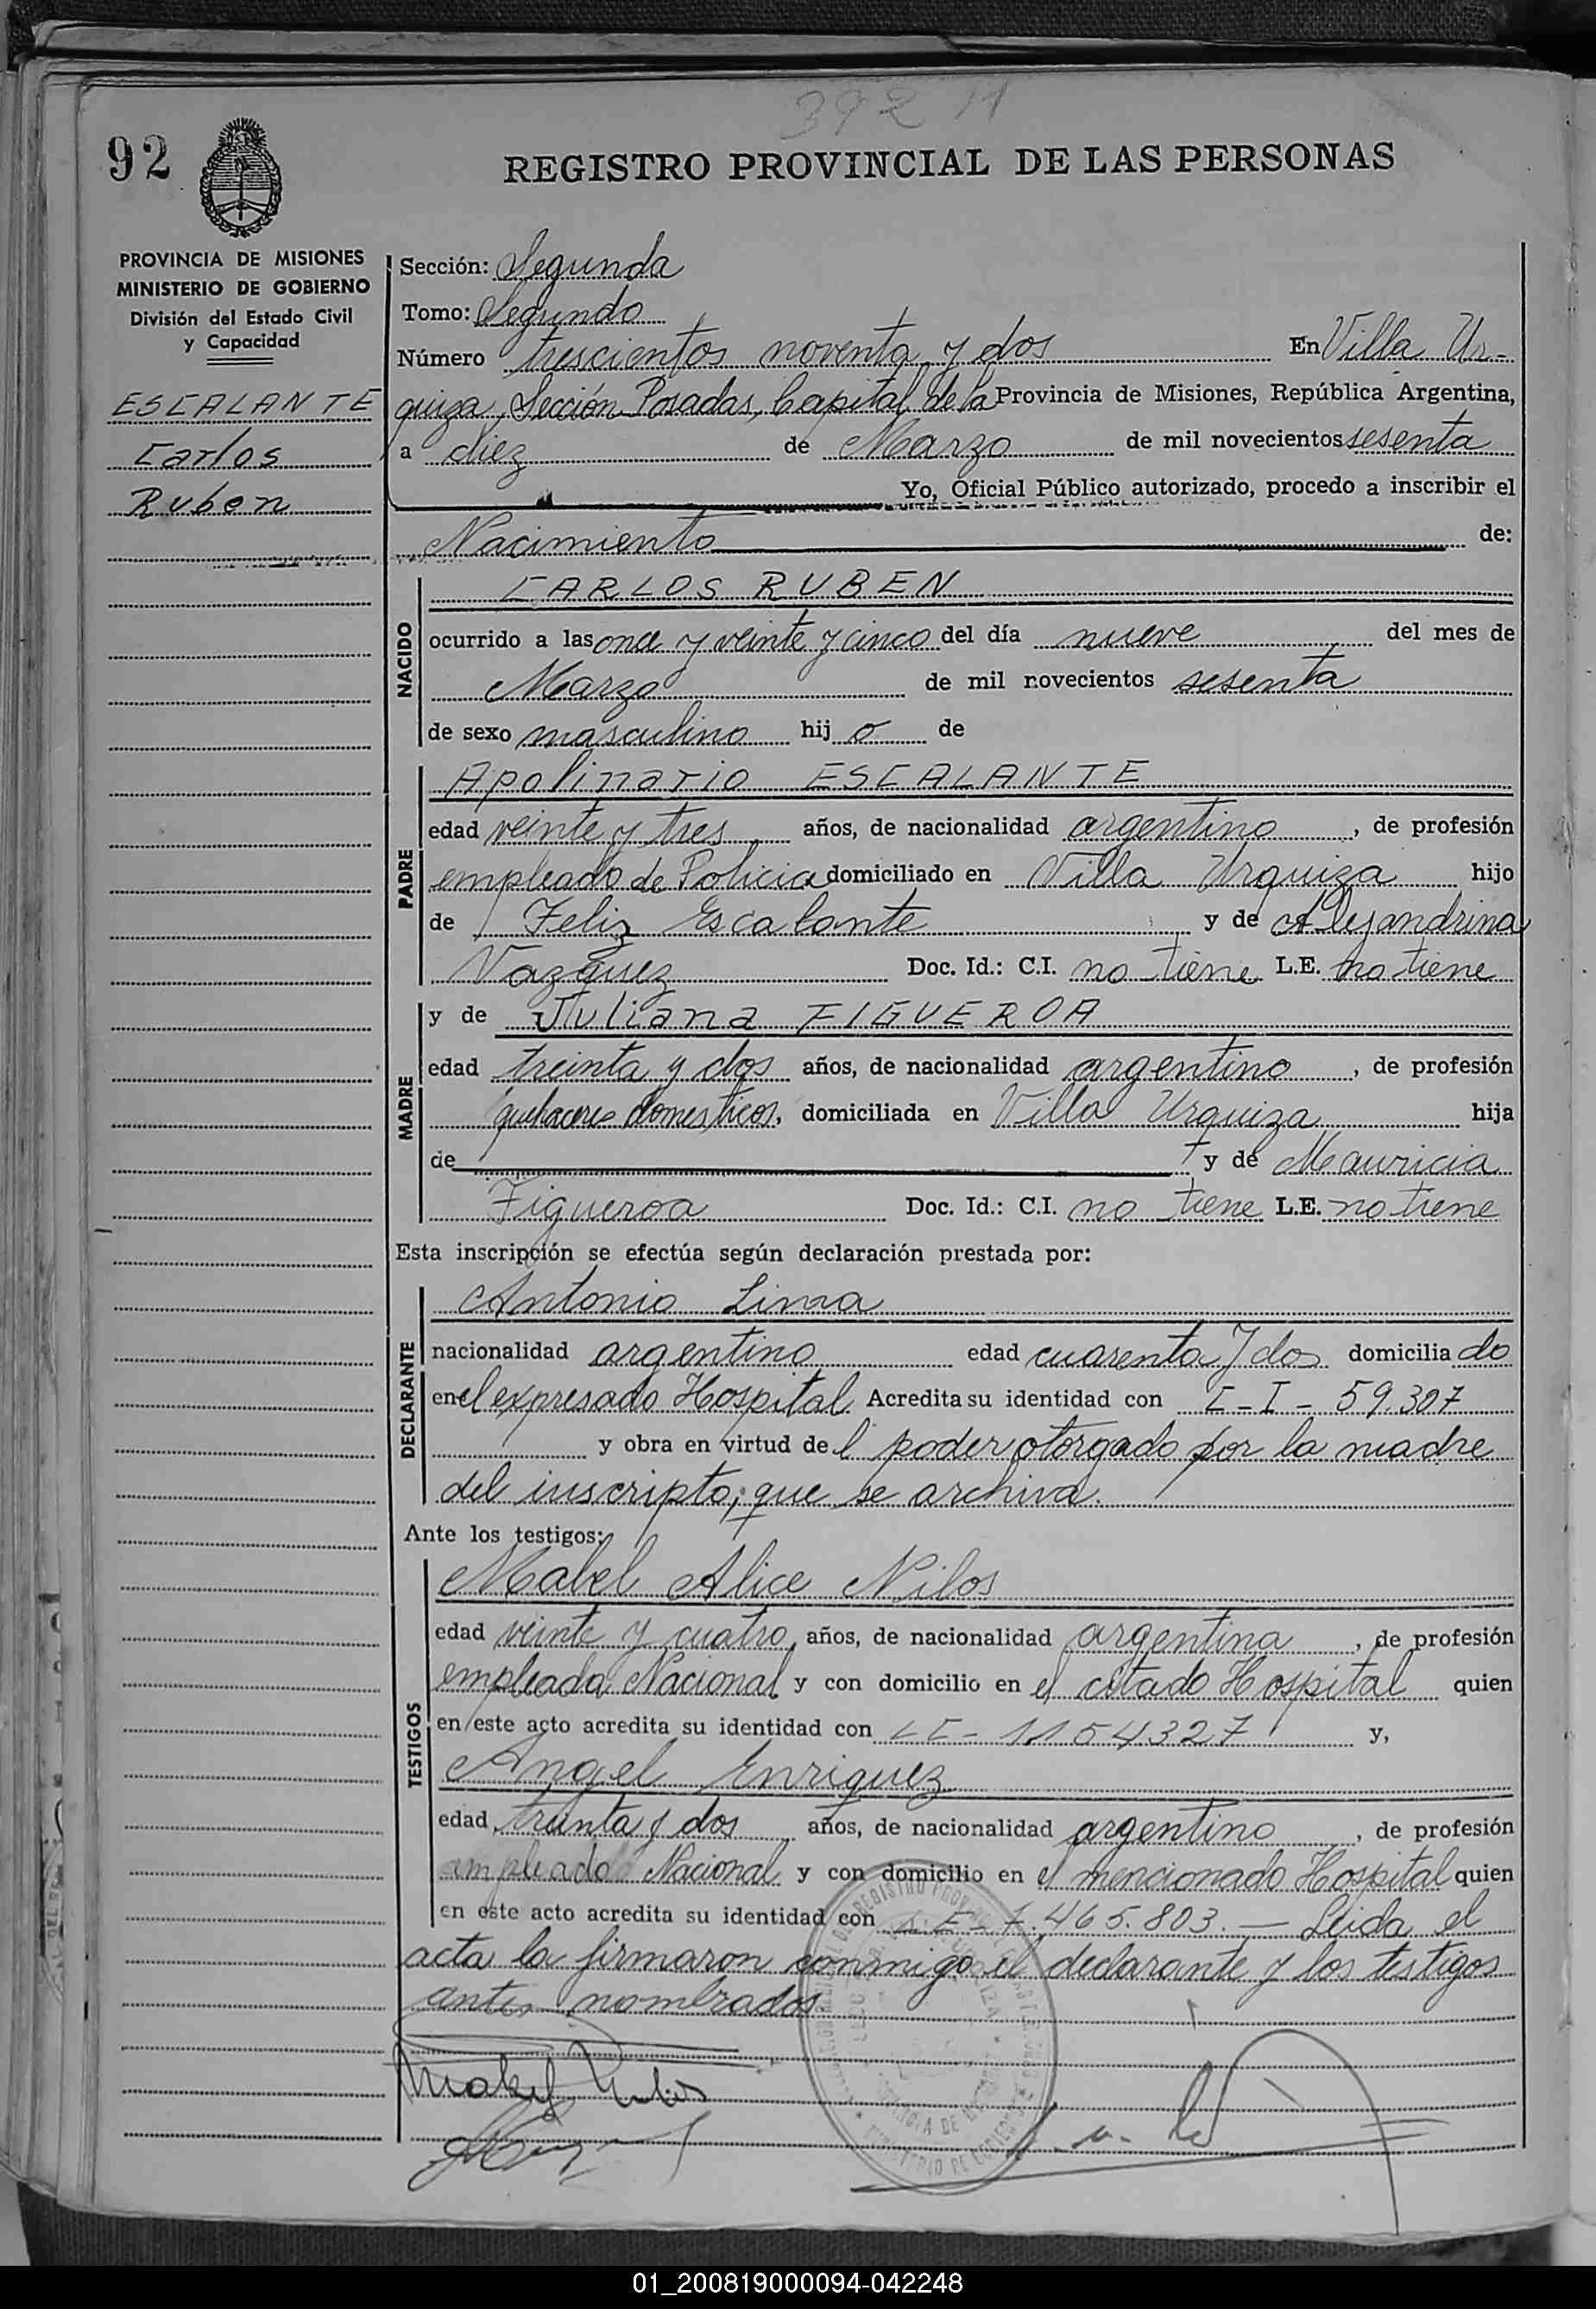 392 H
92
REGISTRO PROVINCIAL DE LAS PERSONAS
PROVINCIA DE MISIONES
MINISTERIO DE GOBIERNO
División del Estado Civil
y Capacidad
ESCALANTE
Carlos
Ruben
Sección: Segunda
Tomo: Segundo
Número trescientos noventa y dos En Villa Ur-
quiza, Sección Posadas, Capital de la Provincia de Misiones, República Argentina,
a diez de Marzo de mil novecientos sesenta
Yo, Oficial Público autorizado, procedo a inscribir el
Nacimiento de:
NACIDO
CARLOS RUBEN
ocurrido a las once y veinte y cinco del día nueve del mes de
Marzo de mil novecientos sesenta
de sexo masculino hij o de
PADRE
Apolinario ESCALANTE
edad veinte y tres años, de nacionalidad argentino, de profesión
empleado de Policia domiciliado en Villa Urquiza hijo
de Feliz Escalante y de Alejandrina
Vazquez Doc. Id.: C.I. no tiene L.E. no tiene
MADRE
y de Juliana FIGUEROA
edad treinta y dos años, de nacionalidad argentino, de profesión
quehaceres domesticos, domiciliada en Villa Urquiza hija
de y de Mauricia
Figueroa Doc. Id.: C.I. no tiene L.E. no tiene
Esta inscripción se efectúa según declaración prestada por:
DECLARANTE
Antonio Lima
nacionalidad argentino edad cuarenta y dos domicilia do
en el expresado Hospital. Acredita su identidad con C-I- 59.307
y obra en virtud de l poder otorgado por la madre
del inscripto; que se archiva.
Ante los testigos:
TESTIGOS
Mabel Alice Nilos
edad veinte y cuatro, años, de nacionalidad argentina, de profesión
empleada Nacional y con domicilio en el citado Hospital quien
en este acto acredita su identidad con LC- 1154327 y,
Angel Enriquez
edad treinta y dos años, de nacionalidad argentino, de profesión
empleado Nacional y con domicilio en el mencionado Hospital quien
en este acto acredita su identidad con L E- 7.465.803. — Leida el
acta la firmaron conmigo el declarante y los testigos
antes nombrados
01_200819000094-042248